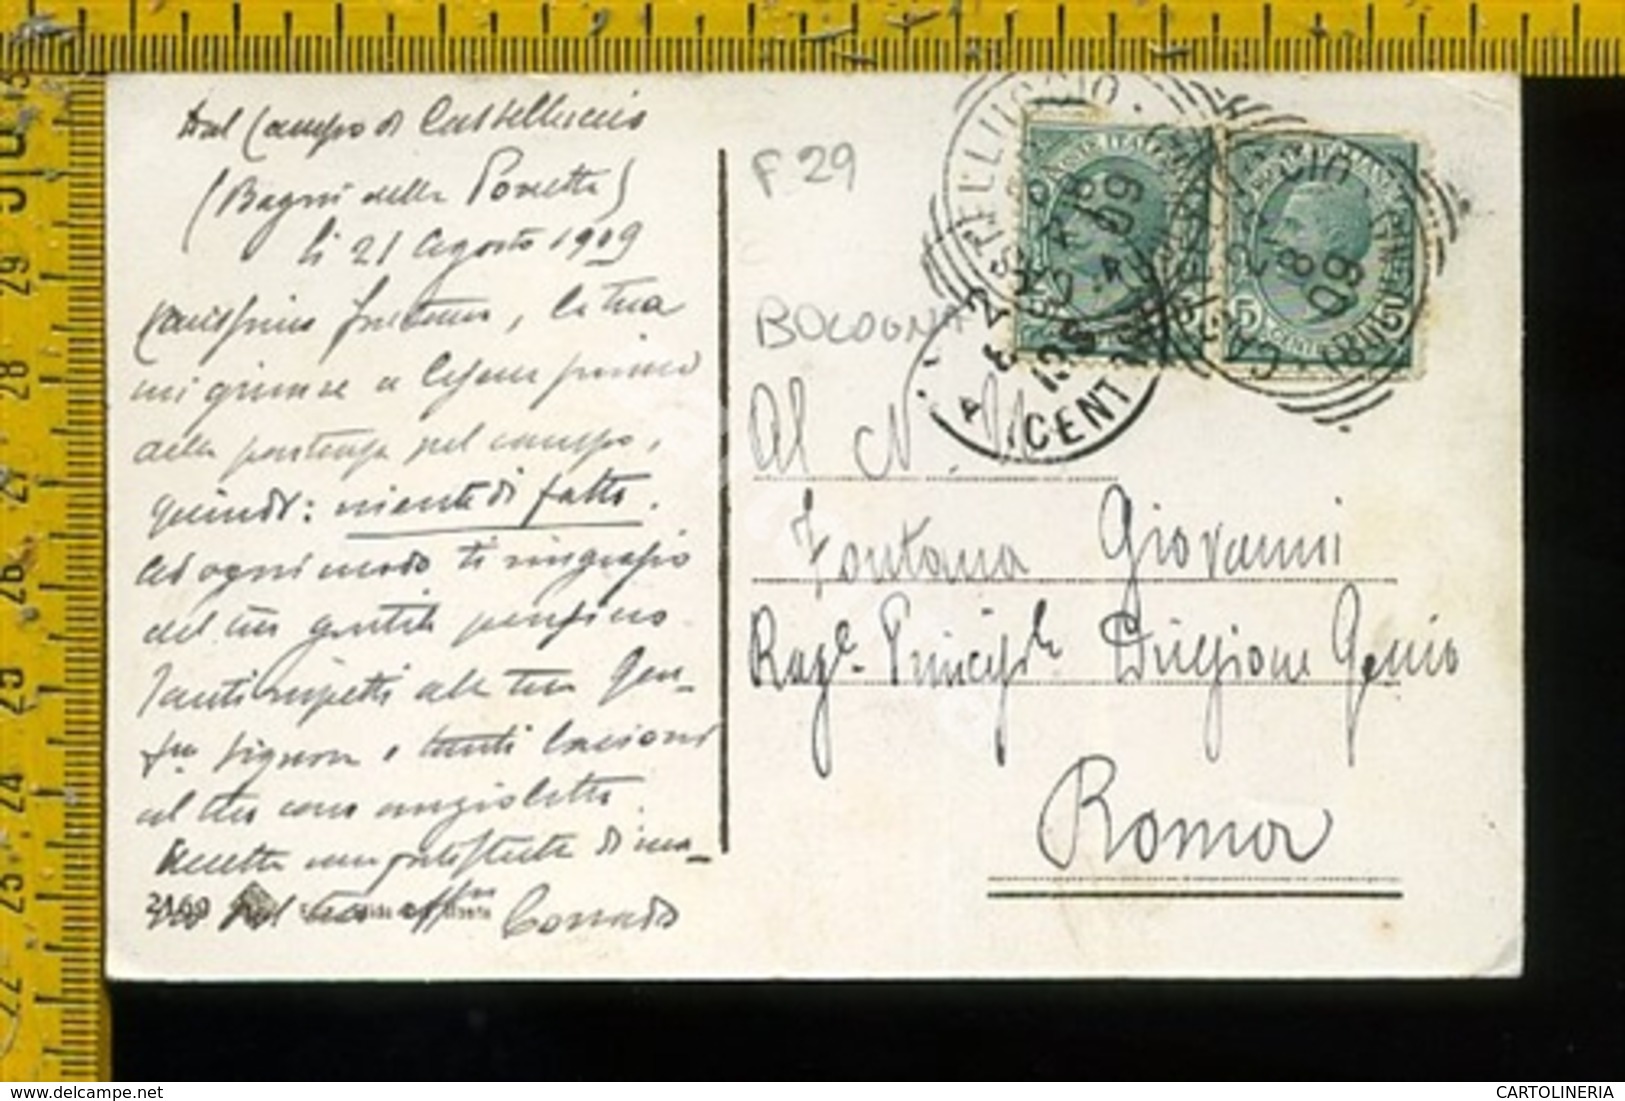 Dal Campo di Castelluccio
(Bagni della Porretta)
li 21 Agosto 1909
Carissimo fratello, la tua
mi giunse a
della partenza pel campo,
quindi: niente di fatto.
Ad ogni modo ti ringrazio
del tuo gentile pensiero
Tanti rispetti alla tua Gen-
Signora e tanti bacioni
al tuo caro angioletto.
Accetta una di ma-
no dal tuo aff.mo Corrado
2169
F 29
BOLOGNA
CASTELLUCCIO
22 8 09
CENT
5
Al N.
Fontana Giovanni
Rag.e Principale Direzione Genio
Roma
CARTOLINERIA